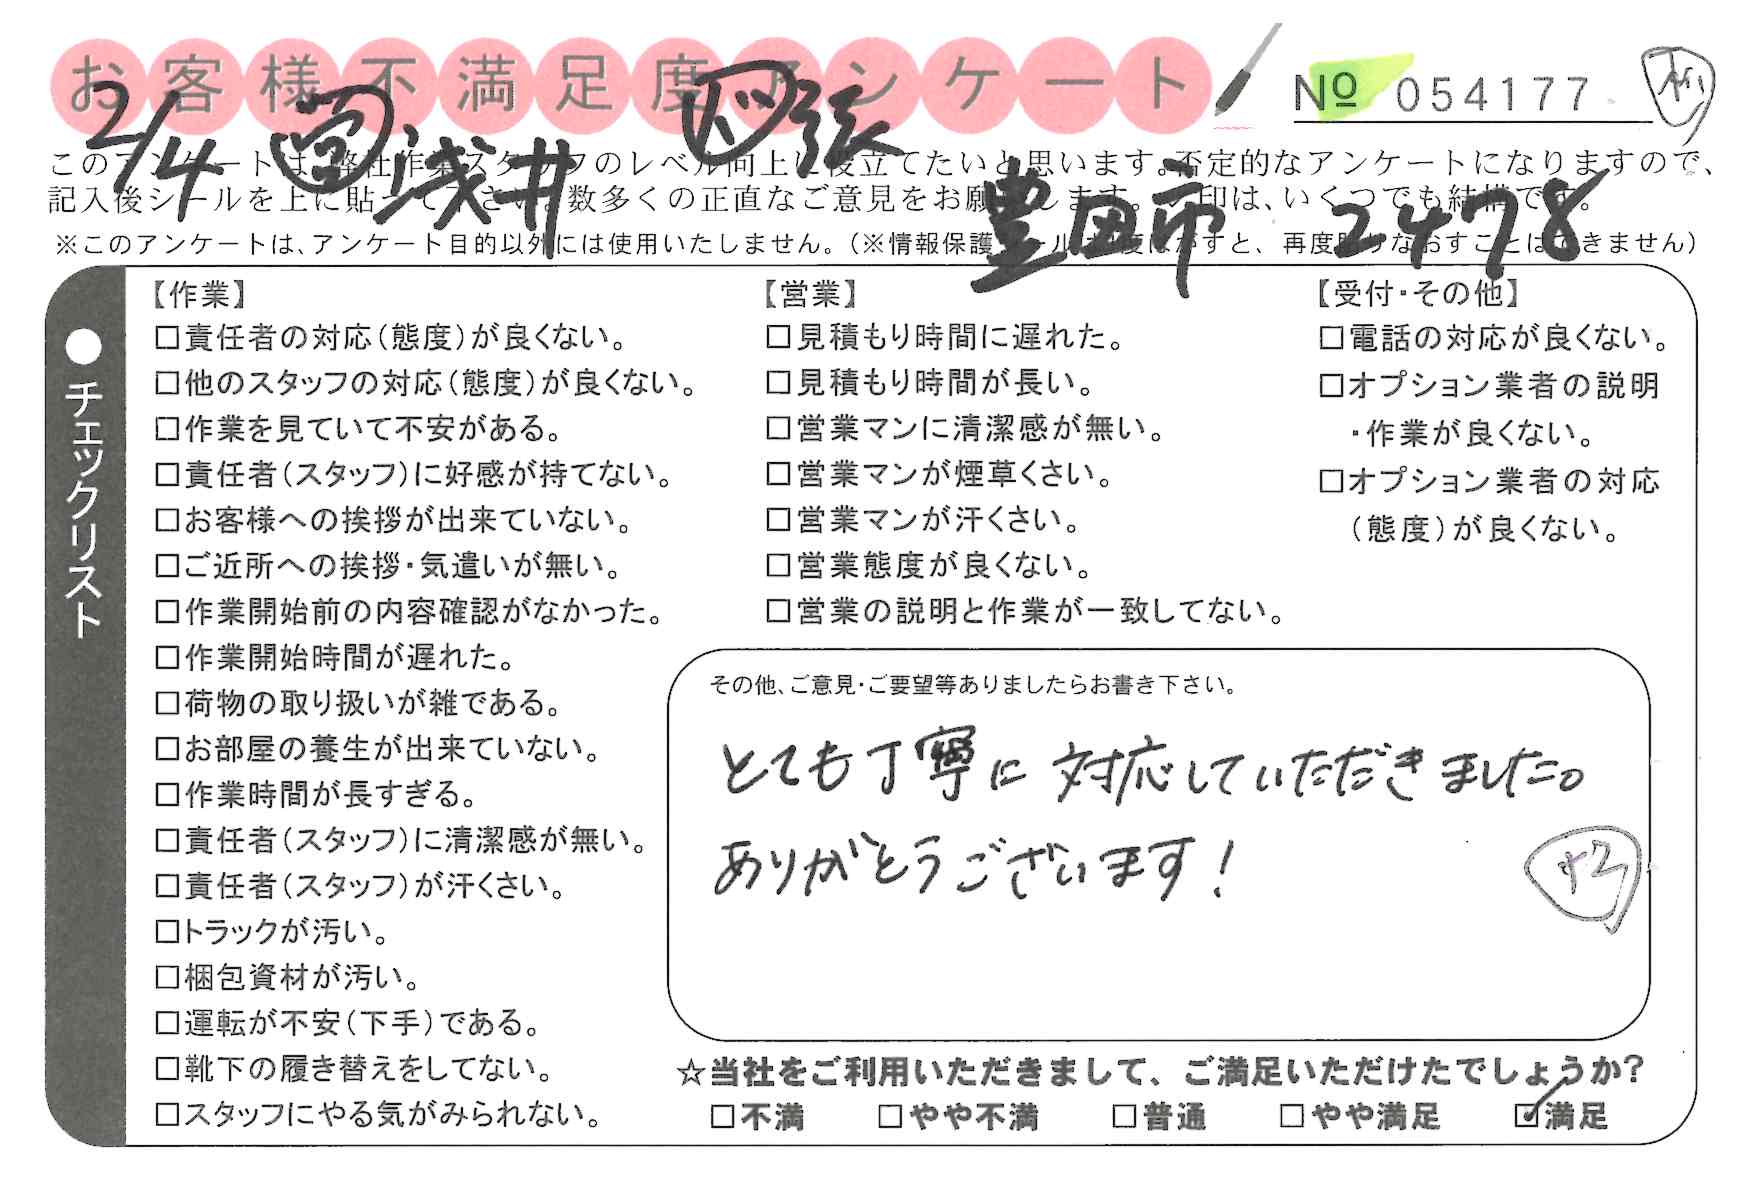 お客様不満足度アンケート
№ 054177
2/4 浅井
豊田市 2478
このアンケートは、弊社作業スタッフのレベル向上に役立てたいと思います。否定的なアンケートになりますので、
記入後シールを上に貼って下さい。数多くの正直なご意見をお願いします。レ印は、いくつでも結構です。
※このアンケートは、アンケート目的以外には使用いたしません。(※情報保護シールは1度はがすと、再度貼りなおすことはできません)
●チェックリスト
【作業】
□責任者の対応(態度)が良くない。
□他のスタッフの対応(態度)が良くない。
□作業を見ていて不安がある。
□責任者(スタッフ)に好感が持てない。
□お客様への挨拶が出来ていない。
□ご近所への挨拶・気遣いが無い。
□作業開始前の内容確認がなかった。
□作業開始時間が遅れた。
□荷物の取り扱いが雑である。
□お部屋の養生が出来ていない。
□作業時間が長すぎる。
□責任者(スタッフ)に清潔感が無い。
□責任者(スタッフ)が汗くさい。
□トラックが汚い。
□梱包資材が汚い。
□運転が不安(下手)である。
□靴下の履き替えをしてない。
□スタッフにやる気がみられない。
【営業】
□見積もり時間に遅れた。
□見積もり時間が長い。
□営業マンに清潔感が無い。
□営業マンが煙草くさい。
□営業マンが汗くさい。
□営業態度が良くない。
□営業の説明と作業が一致してない。
【受付・その他】
□電話の対応が良くない。
□オプション業者の説明
・作業が良くない。
□オプション業者の対応
(態度)が良くない。
その他、ご意見・ご要望等ありましたらお書き下さい。
とても丁寧に対応していただきました。
ありがとうございます!
☆当社をご利用いただきまして、ご満足いただけたでしょうか?
□不満 □やや不満 □普通 □やや満足 ☑満足